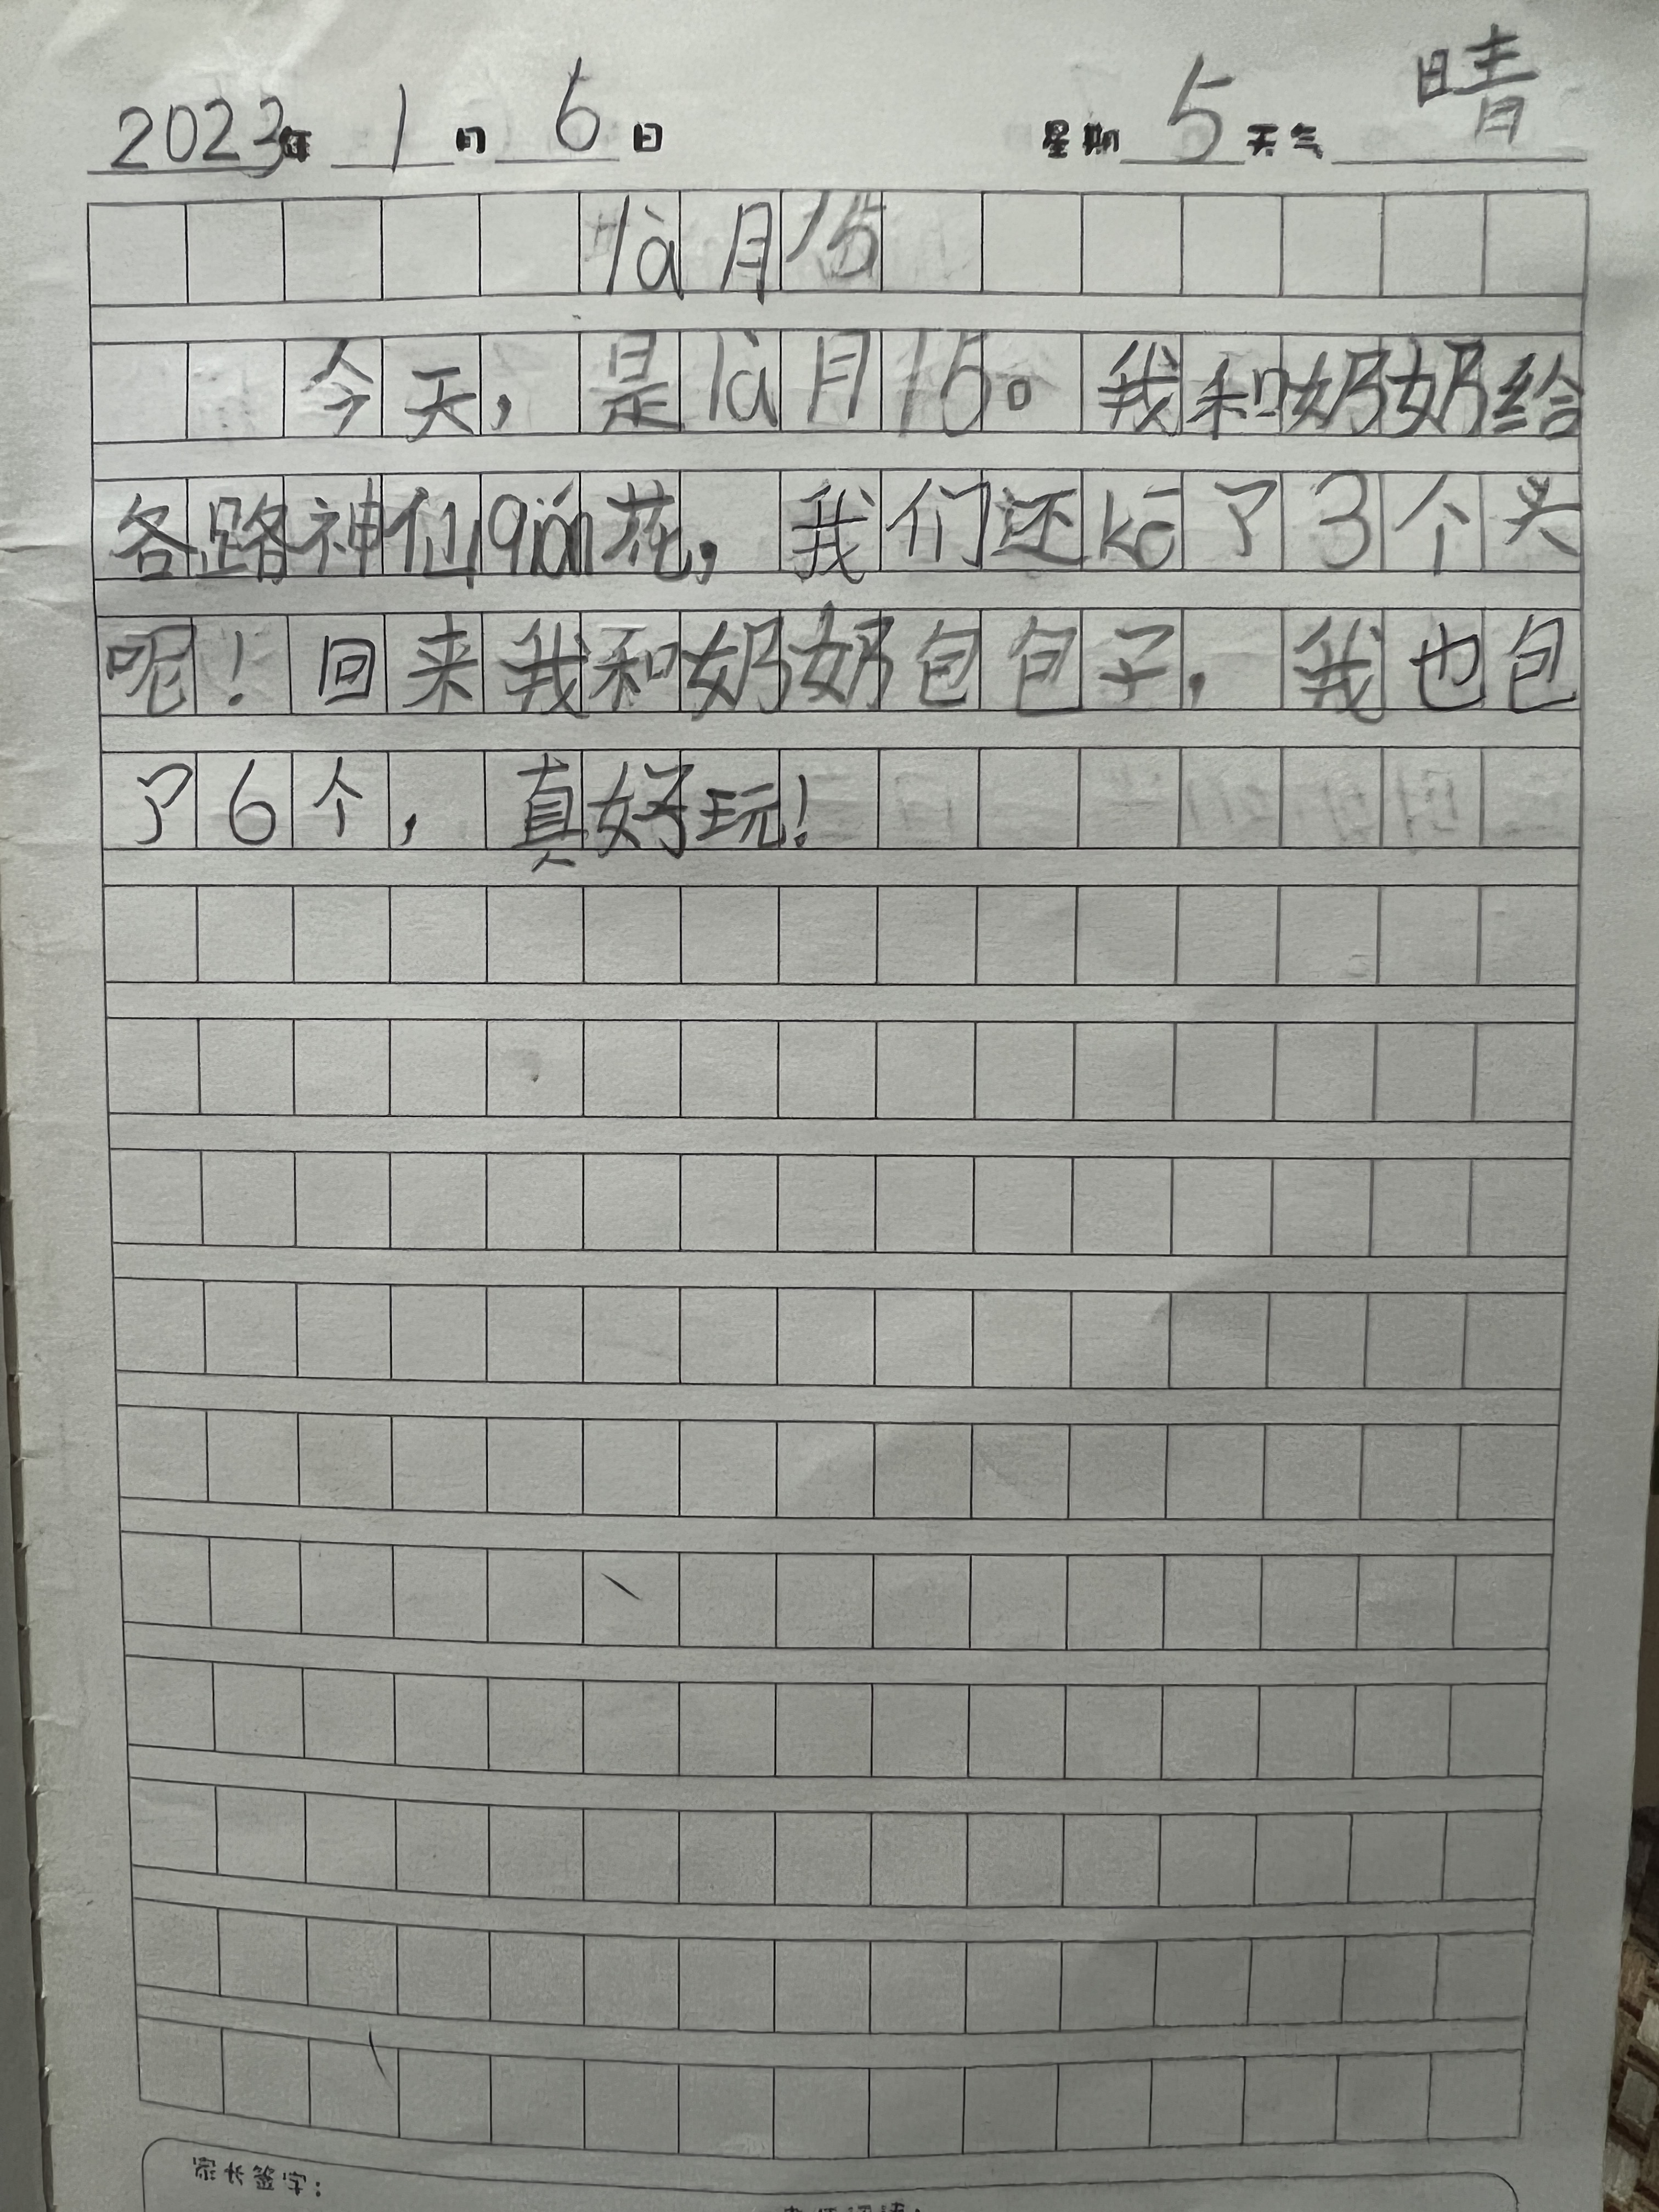 2023年 1月 6日 星期 5 天气 晴
là月15
今天，是là月15。我和奶奶给
各路神仙qián花，我们还kē了3个头
呢！回来我和奶奶包包子，我也包
了6个，真好玩！
家长签字：